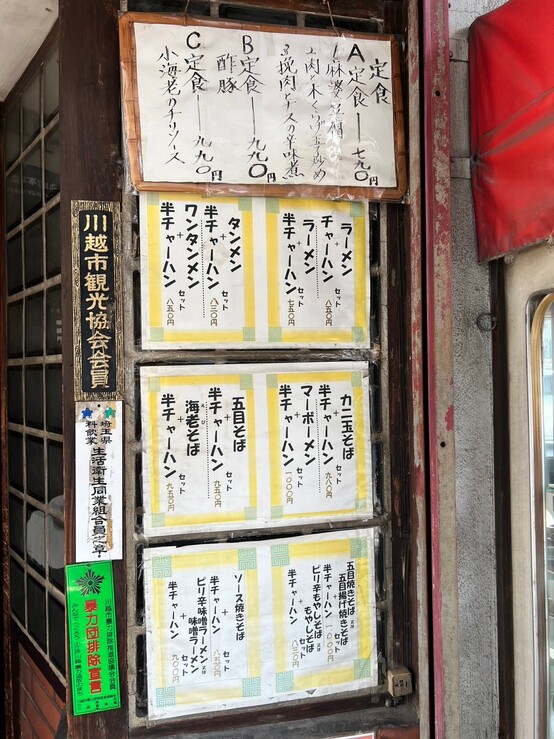 定食
A定食――七九〇円
1麻婆豆腐
2肉と木くらげ玉子炒め
3挽肉とナスの辛味煮
B定食――九九〇円
酢豚
C定食――九九〇円
小海老のチリソース
ラーメン
+
チャーハン
セット
八五〇円
ラーメン
+
半チャーハン
セット
七五〇円
タンメン
+
半チャーハン
セット
八三〇円
ワンタンメン
+
半チャーハン
セット
八五〇円
カニ玉そば
+
半チャーハン
セット
九八〇円
マーボーメン
+
半チャーハン
セット
一〇〇〇円
五目そば
+
半チャーハン
セット
九五〇円
海老そば
+
半チャーハン
セット
九五〇円
五目焼きそば
又は
五目揚げ焼きそば
+
半チャーハン
セット
一〇〇〇円
ピリ辛もやしそば
又は
もやしそば
+
半チャーハン
セット
八三〇円
ソース焼きそば
+
半チャーハン
セット
八五〇円
ピリ辛味噌ラーメン
又は
味噌ラーメン
+
半チャーハン
セット
九〇〇円
川越市観光協会会員
埼玉県
料飲業
生活衛生同業組合員之章
川越市暴力排除推進協議会会員
暴力団排除宣言